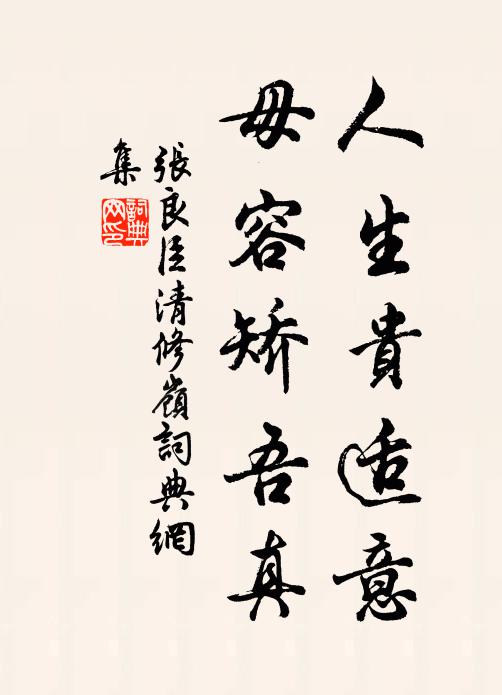 人生貴适意
毋容矫吾真
張良臣清修嶺詞典網
集
詞典
网印